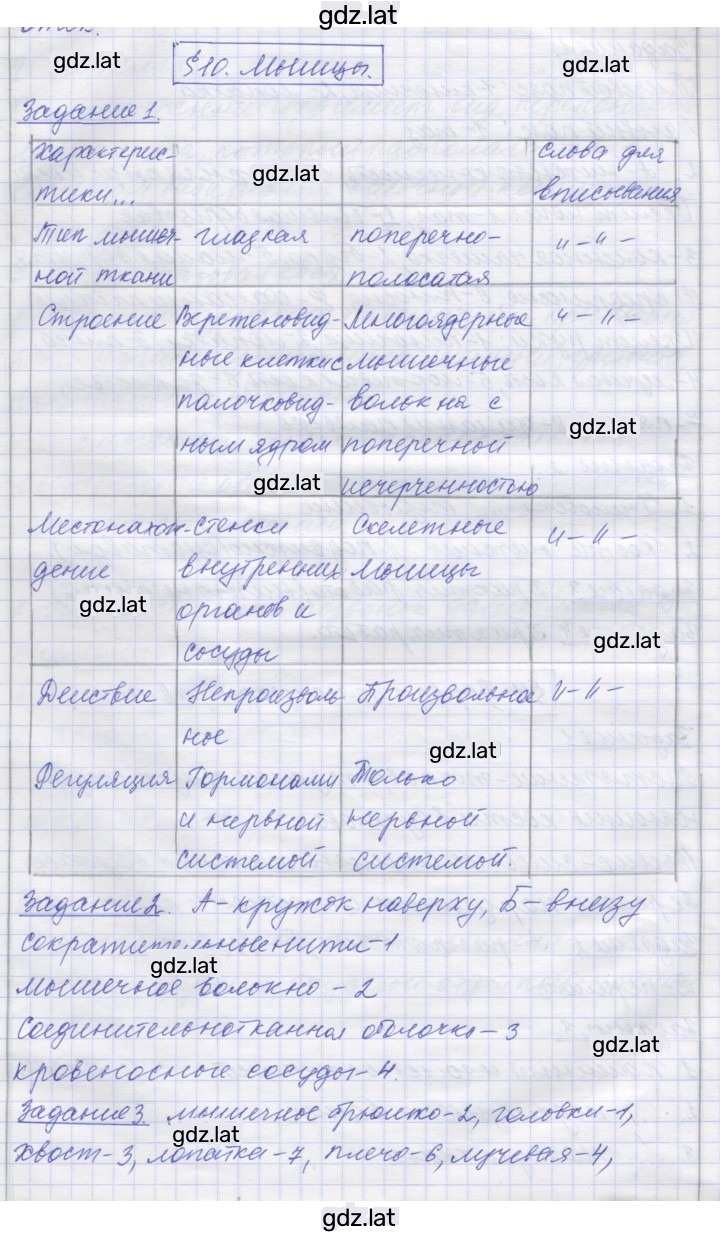 gdz.lat
gdz.lat
§10. Мышцы.
gdz.lat
Задание 1.
Характерис-
тики...
gdz.lat
слова для
вписывания
Тип мышеч-
ной ткани
гладкая
поперечно-
полосатая
"–"–
Строение
Веретеновид-
ные клетки с
палочковид-
ным ядром
Многоядерные
мышечные
волокна с
поперечной
исчерченностью
"–"–
gdz.lat
gdz.lat
Местонахож-
дение
стенки
внутренних
органов и
сосуды
Скелетные
мышцы
"–"–
gdz.lat
gdz.lat
Действие
Непроизволь
ное
Произвольное
"–"–
gdz.lat
Регуляция
Гормонами
и нервной
системой
Только
нервной
системой.
Задание 2. А-кружок наверху, Б-внизу
сократительные нити-1
gdz.lat
мышечное волокно - 2
Соединительнотканная оболочка-3
gdz.lat
кровеносные сосуды-4.
Задание 3. мышечное брюшко-2, головки-1,
gdz.lat
хвост-3, лопатка-7, плечо-6, лучевая-4,
gdz.lat